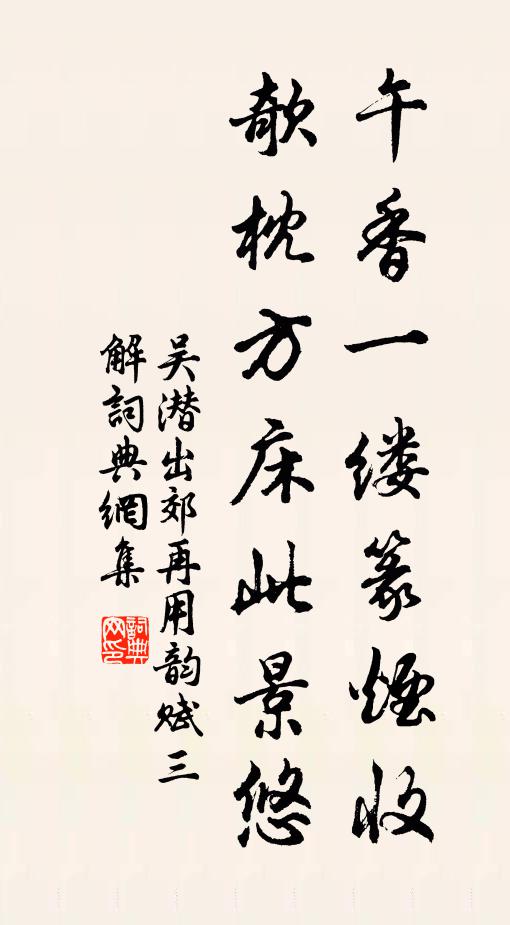 午香一缕篆煙收
欹枕方床此景悠
吴潜出郊再用韵赋三
解詞典網集
詞典网印